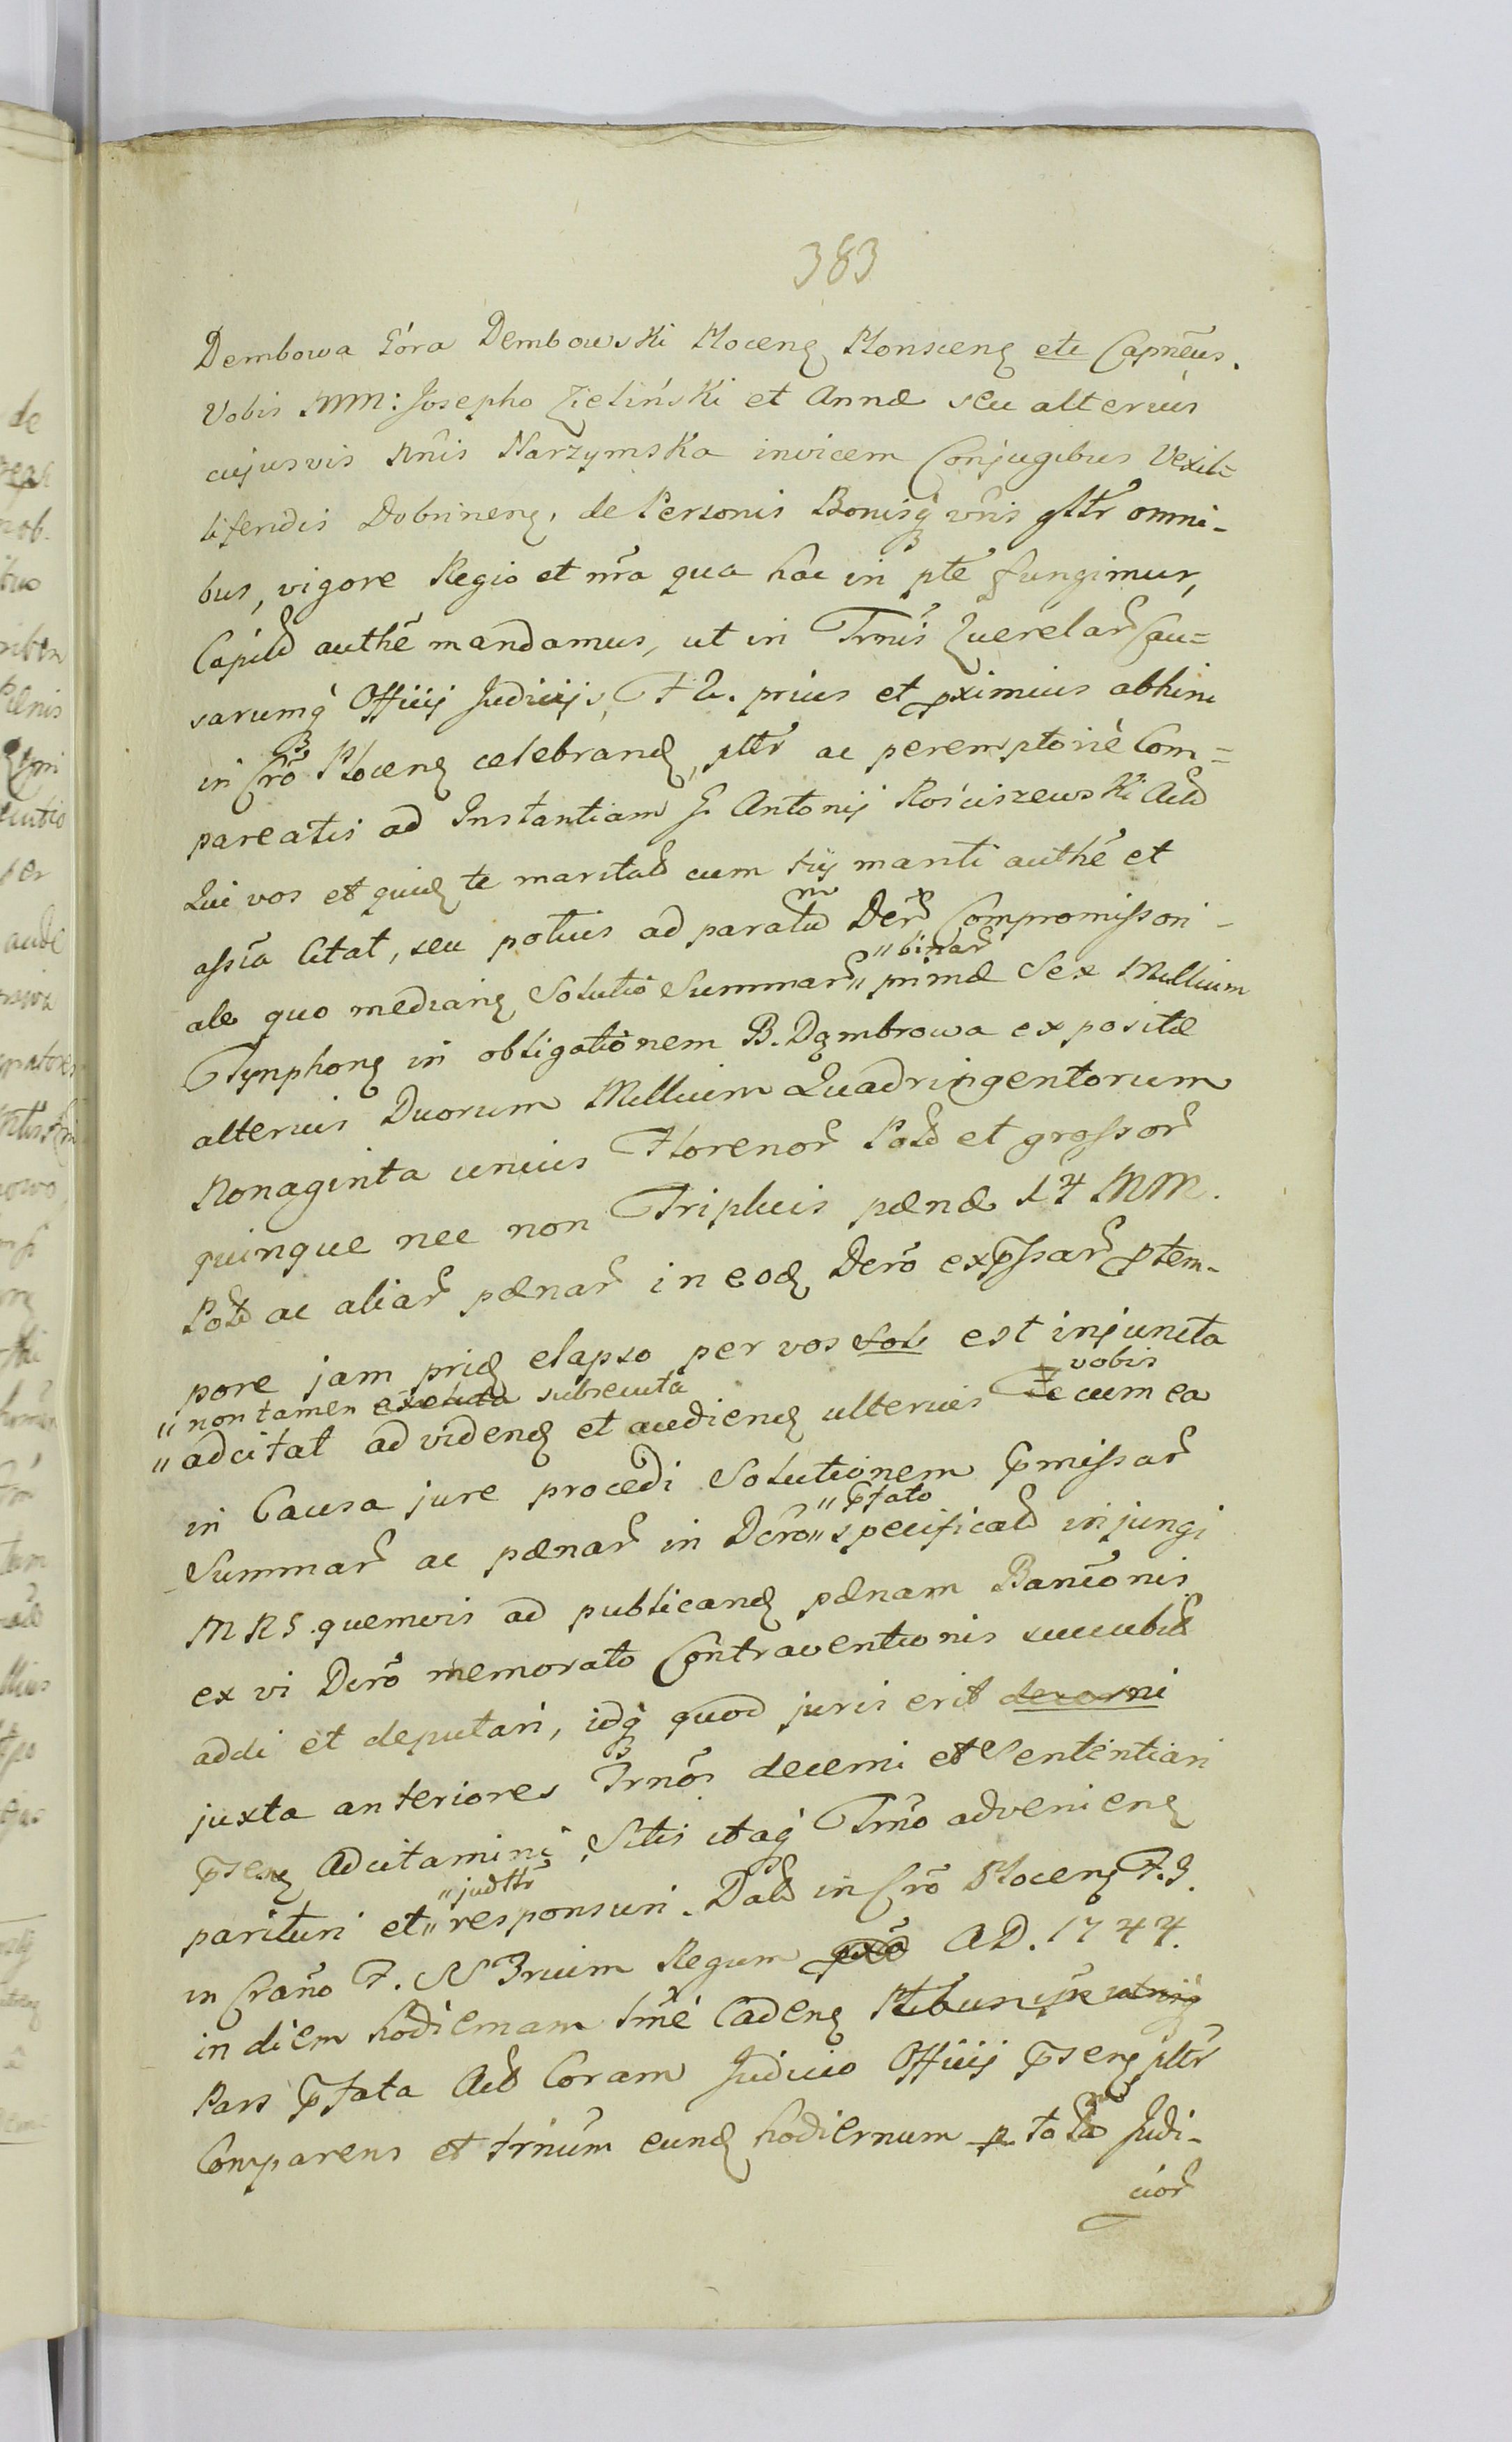 383
Dembowa Góra Dembowski Plocen Plonscen etc Capneus.
Vobis MM: Josepho Zieliński et Annæ seu alterius
cujusvis Nnis Narzymska invicem Conjugibus Vexil=
liferidis Dobrinen, de Personis Bonisq vris gltr omni-
bus, vigore Regio et nra qua hac in pte fungimur,
Capild authe mandamus, ut in Trnis Querelar Cau=
sarumq Officij Judicijs, F 2. prius et pximius abhinc
in Cro Plocen celebrand, pltr ac peremptorie Com=
pareatis ad Instantiam G. Antonij Rościszewski Actd
Qui vos et quid te maritald cum tij mariti authe et
assia Citat, seu potius ad paratu Der Compromissori-
ale quo median Solutio Summar "binar" primæ Sex Millium
Tynphon in obligationem B. Dąmbrowa expositæ
alterius Duorum Millium Quadringentorum
Nonaginta unius Florenor Pold et grossor
quinque nec non Tripluis pænæ 14 MM.
Pold ac aliar pænar in eod Dero expssar ptem-
pore jam prid elapso per vos Sol est injuncta
"non tamen exoluta subsecuta
"adcitat ad viden et audien ulterius Te vobis cum ea
in Causa jure procedi Solutionem pmissar
Summar ac pænar in Dcro "pfato" specificald injungi
MRS. quemvis ad publicand pænam Banionis
ex vi Dcro memorato Contraventionis succubild
addi et deputari, idq quod juris erit decerni
juxta anteriores Trnos decerni et Sententiari
psen Adcitamini, Sitis itaq Trno advenien
parituri et "judtr" responsuri. Dald in Cro Plocen F. 3.
in Crano F. SS Trium Regum AD. 1744.
in diem hodiernam tme Caden
Pars pfata Actd Coram Judicio Officij psen pltr
Comparens et trnum eund hodiernum p tota Judi-
cior